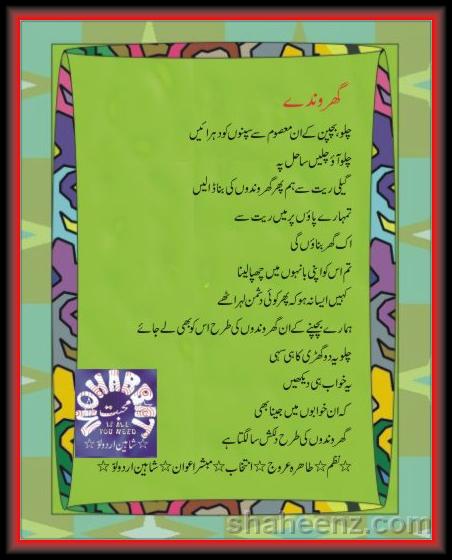 گھروندے
چلو، بچپن کے ان معصوم سے سپنوں کو دہرائیں
چلو آؤ چلیں ساحل پہ
گیلی ریت سے ہم پھر گھروندوں کی بنا ڈالیں
تمہارے پاؤں پر میں ریت سے
اک گھر بناؤں گی
تم اس کو اپنی بانہوں میں چھپا لینا
کہیں ایسا نہ ہو کہ پھر کوئی دشمن لہر اٹھے
ہمارے بچپنے کے ان گھروندوں کی طرح اس کو بھی لے جائے
چلو یہ دو گھڑی کا ہی سہی
یہ خواب ہی دیکھیں
کہ ان خوابوں میں جینا بھی
گھروندوں کی طرح دلکش سا لگتا ہے
☆ نظم ☆ طاہرہ عروج ☆ انتخاب ☆ مبشر اعوان ☆ شاہین اردو لوّ ☆
MOHABBAT
محبت
IS ALL
YOU NEED
☆ شاہین اردو لوّ ☆
shaheenz.com